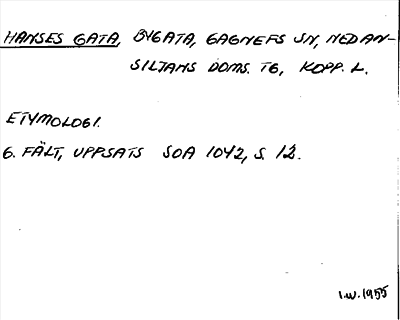 HANSES GATA, BYGATA, GAGNEFS SN, NEDAN-
SILJANS DOMS. TG, KOPP. L.
ETYMOLOGI.
G. FÄLT, UPPSATS SOA 1042, S. 12.
I.W. 1955